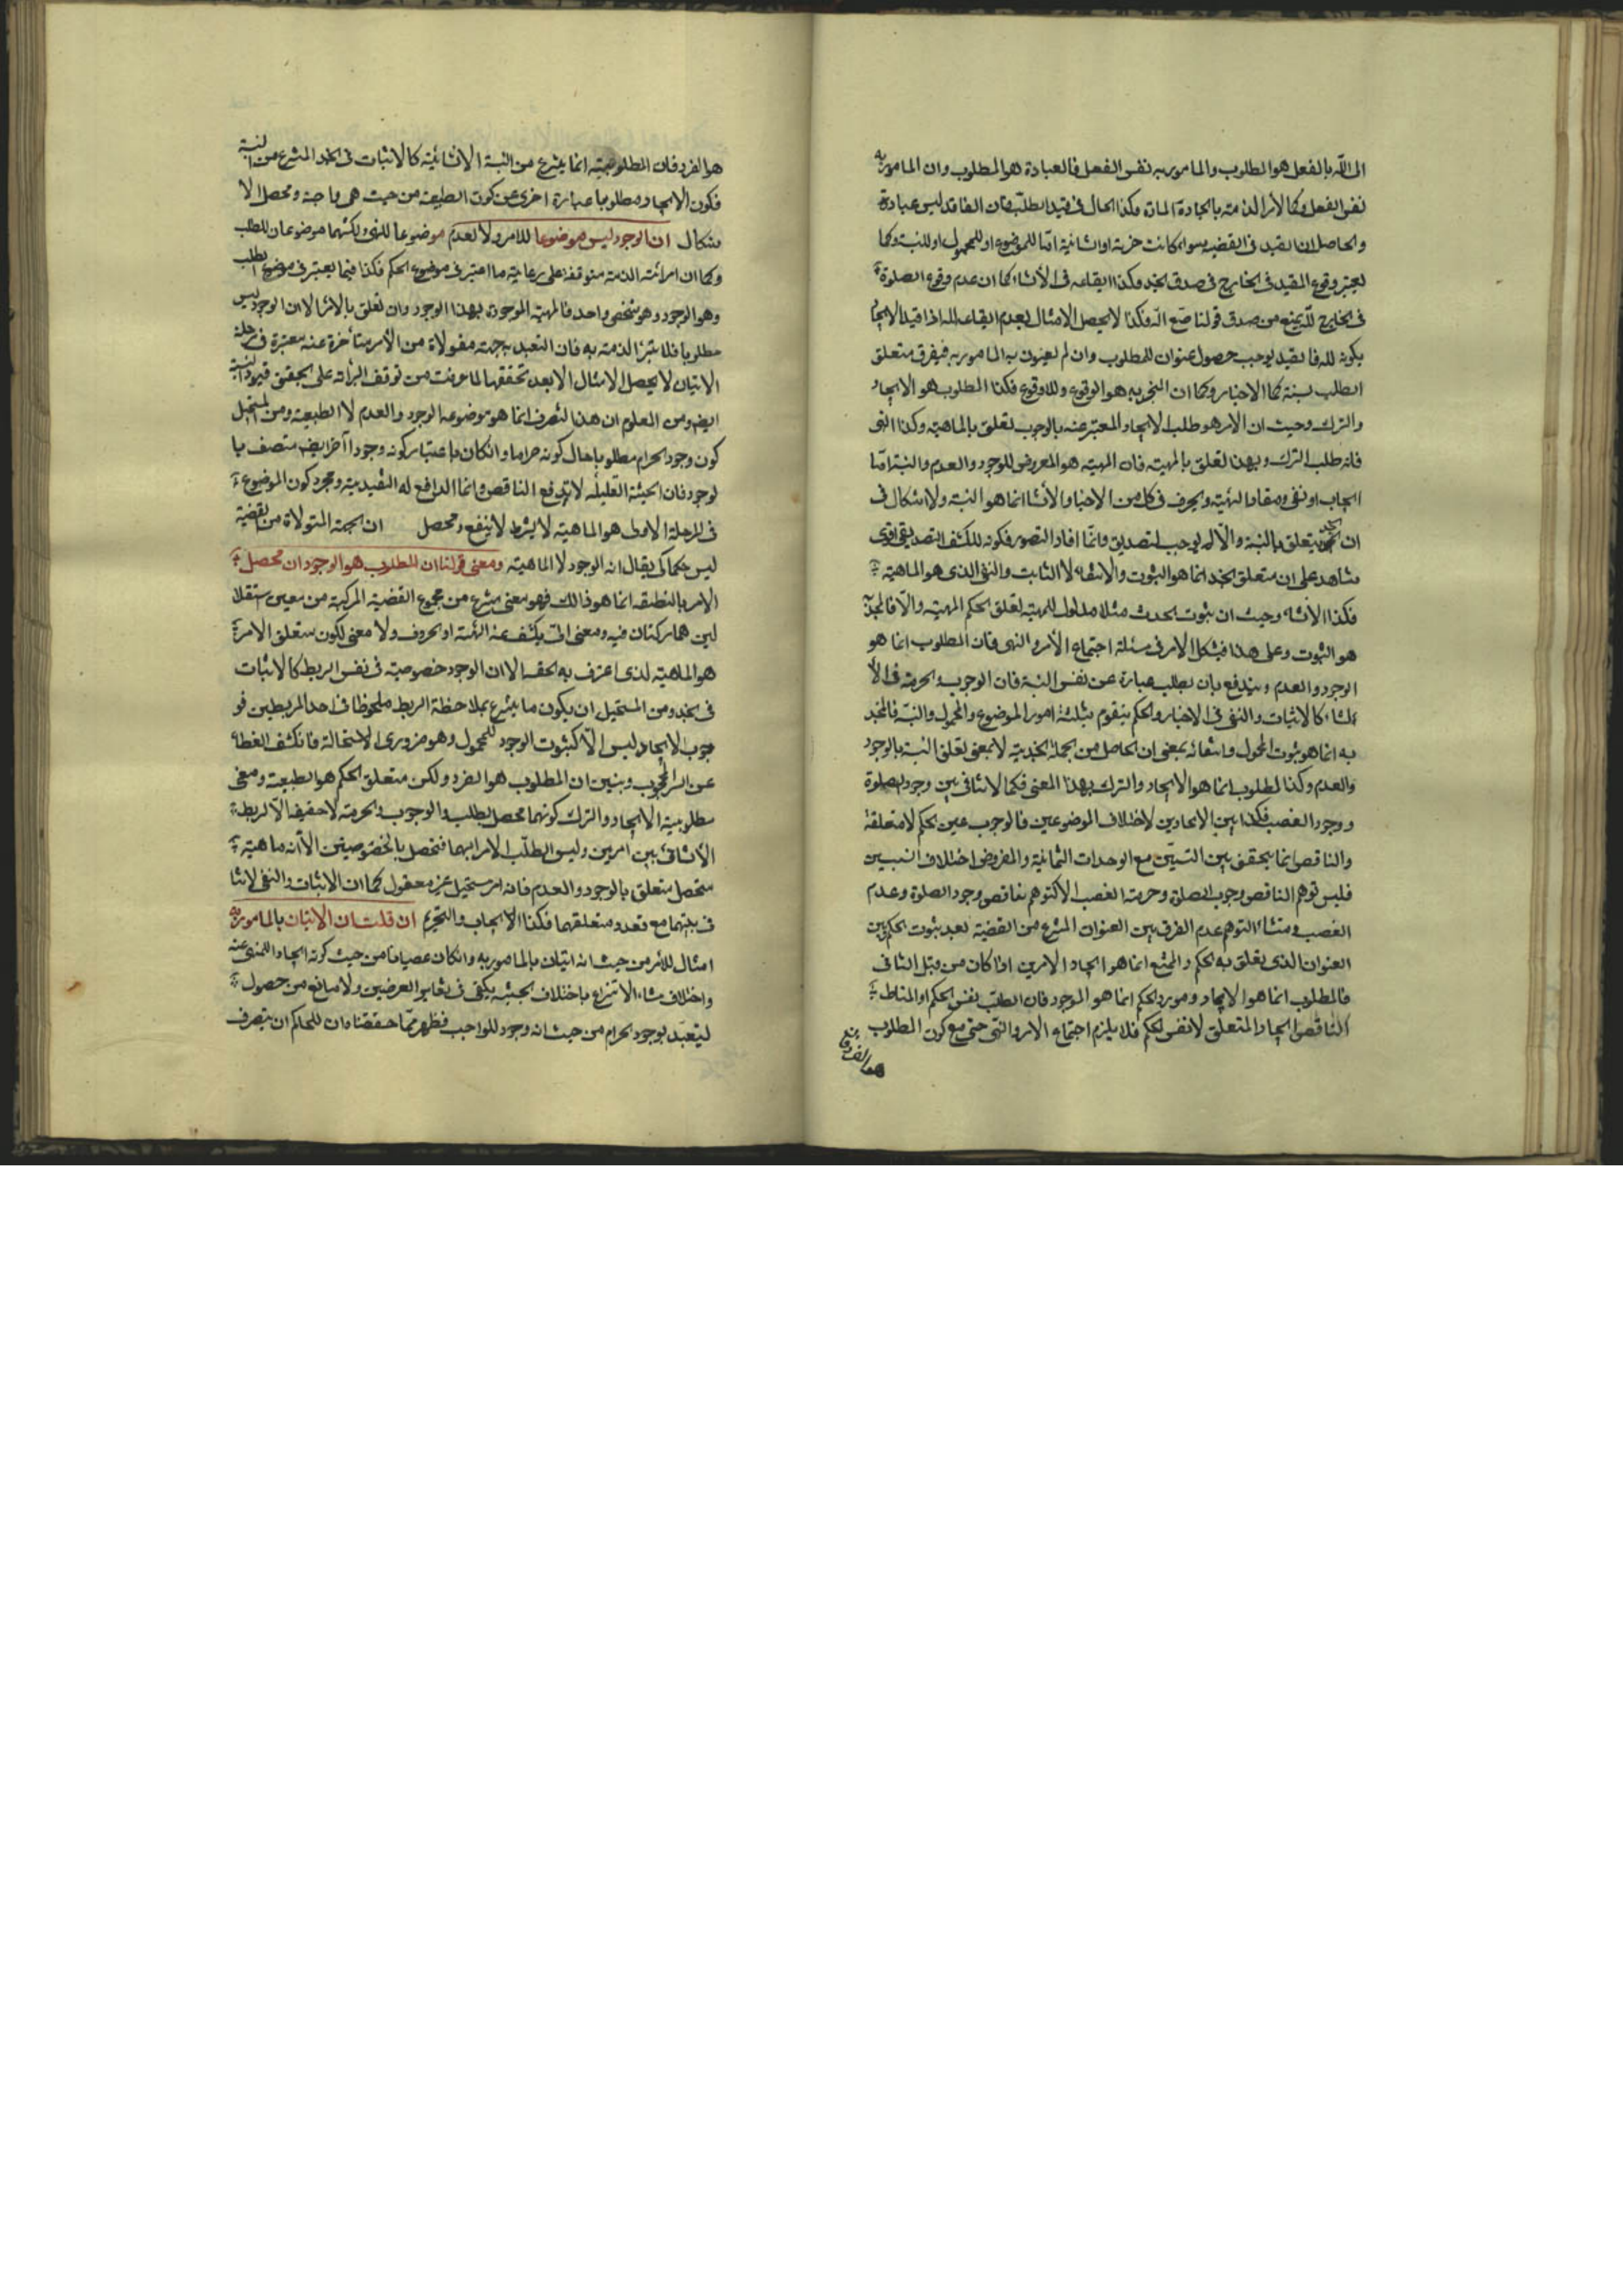 الى الله بالفعل هو المطلوب والمامور به نفس الفعل فالعبادة هو المطلوب وان المامور به
نفس الفعل وكالامر الذمته بالجادة المادة وهكذا الحال في قيد الطلب فان الفاقد ليس عبادة
والحاصل ان القيد في القضيه سواء كانت خبرية او انشائية اما للموضوع او للمحمول او للنسبة وكما
يعتبر وقوع المقيد في الخارج في صدق الخبر وهكذا ايقاعه في الانشاء كما ان عدم وقوع الصلوة
في الخارج لله يمنع من صدق قولنا لله فكذا لا يحصل الامتثال بعدم ايقاعه لله اذا قيد الايجاد
بكونه لله فالقيد يوجب حصول عنوان للمطلوب وان لم يعنون به المامور به فيفرق متعلق
الطلب كما الاخبار وكما ان المخبر به هو الوقوع واللاوقوع فكذا المطلوب هو الايجاد
والترك وحيث ان الامر هو طلب الايجاد المعتبر عنه بالوجوب تعلق بالماهية وكذا النهى
فانه طلب الترك وبهذا تعلق بالمهية فان المهية هو المعروض للوجود والعدم والنسبة اما
ايجاب او نفى ومفاد الهيئة والحروف في كل من الاخبار والانشاء انما هو النسبة ولا اشكال في
ان يتعلق بالنسبة والا لم يوجب التصديق وانما افاد التصور فكونه للكشف التصديقى اقوى
شاهد على ان متعلق الخبر انما هو الثبوت والانتفاء لا الثابت والنفى الذى هو الماهية
فكذا الانشاء وحيث ان ثبوت الحدث مثلا مدلول للهيئة تعلق الحكم المهية والا فالمخبر
هو الثبوت وعلى هذا فيشكل الامر في مسئلة اجتماع الامر والنهى فان المطلوب انما هو
الوجود والعدم ويندفع بان الطلب عبارة عن نفس النسبة فان الوجوب والحرمة في الا
نشاء كالاثبات والنفى في الاخبار والحكم يتقوم بثلثة امور الموضوع والمحمول والنسبة فالمخبر
به انما هو ثبوت المحمول وانتفائه بمعنى ان الحاصل من الجملة الخبرية لا بمعنى تعلق النسبة بالوجود
والعدم وكذا المطلوب انما هو الايجاد والترك بهذا المعنى فكما لا تنافى بين وجود الصلوة
ووجود الغصب فكذا بين الايجادين لاختلاف الموضوعين فالوجوب عين الحكم لا متعلقة
والتناقص انما يتحقق بين الشيئين مع الوحدات الثمانية والمفروض اختلاف النسبين
فليس توهم التناقص وجوب الصلوة وحرمة الغصب الا كتوهم تناقص وجود الصلوة وعدم
الغصب ومنشاء التوهم عدم الفرق بين العنوان المنتزع من القضية بعد ثبوت الحكم وبين
العنوان الذى تعلق به الحكم والممتنع انما هو ايجاد الامرين اذا كان من قبل الثانى
فالمطلوب انما هو الايجاد ومورد الحكم انما هو الموجود فان الطلب نفس الحكم والمناط
التناقص ايجاد المتعلق لا نفس الحكم فلا يلزم اجتماع الامر والنهى حتى مع كون المطلوب
هو الفرد فان
هو الفرد فان المطلوبية انما ينتزع من النسبة الانشائية كالاثبات في الخبر المنتزع من النسبة
فكون الايجاد مطلوبا عبارة اخرى عن كون الطبيعة من حيث هى واجبة ومحصل الا
شكال ان الوجود ليس موضوعا للامر ولا العدم موضوعا للنهى ولكنهما موضوعان للطلب
وكما ان برائة الذمة متوقفة على رعاية ما اعتبر في موضوع الحكم فكذا فيما يعتبر في موضوع الطلب
وهو الوجود وهو شخصى واحد فالمهية الموجودة بهذا الوجود وان تعلق بها الامر الا ان الوجود ليس
مطلوبا فلا تبرأ الذمة به فان التعبد بجهة مقولاة من الامر متأخرة عنه معتبرة في مرحلة
الاتيان لا يحصل الامتثال الا بعد تحققها لما عرفت من توقف البرائة على تحقق قيود النسبة
ايض ومن المعلوم ان هذا التصرف انما هو موضوعه الوجود والعدم لا الطبيعة ومن المستحيل
كون وجود الحرام مطلوبا حال كونه حراما وان كان باعتبار كونه وجودا آخر ايض متصف با
لوجود فان الحيثية التعليلية لا تدفع التناقص وانما الدافع له التقييدية ومجرد كون الموضوع
في المرحلة الاولى هو الماهية لا بشرط لا ينفع ومحصل ان الجهة المتولاة من القضية
ليس حكما كى يقال انه الوجود لا الماهية ومعنى قولنا ان المطلوب هو الوجود ان محصل
الامر بالطبيعة انما هو ذالك فهو معنى منتزع من مجموع القضية المركبة من معنيين مستقلا
لين هما ركنان فيه ومعنى آلى يكشف عنه الهيئة او الحروف ولا معنى لكون متعلق الامر
هو الماهية الذى اعترف به الخصم الا ان الوجود خصوصية في نفس الربط كالاثبات
في الخبر ومن المستحيل ان يكون ما ينتزع بملاحظة الربط ملحوظا في احد المربطين فو
جوب الايجاد ليس الا كثبوت الوجود للمحمول وهو ضرورى الاستحالة فانكشف الغطاء
عن السر المحجوب وتبين ان المطلوب هو الفرد ولكن متعلق الحكم هو الطبيعة ومعنى
مطلوبية الايجاد والترك كونهما محصل الطلب والوجوب والحرمة لا حقيقة الا الربط
الانشائى بين امرين وليس الطلب الامر ابهما فتحصل بالخصوصيتين الا انه ماهية
متحصل متعلق بالوجود والعدم فانه امر مستحيل غير معقول كما ان الاثبات والنفى لا تنا
في بينهما مع تعدد متعلقهما فكذا الايجاب والتحريم ان قلت ان الاتيان بالمامور به
امتثال للامر من حيث انه اتيان بالمامور به وان كان عصيانا من حيث كونه ايجادا للمنهى عنه
واختلاف منشاء الانتزاع باختلاف الحيثية يكفى في تغاير العرضين ولا مانع من حصول
التعبد بوجود الحرام من حيث انه وجود للواجب فظهر مما حققناه ان للحاكم ان يتصرف